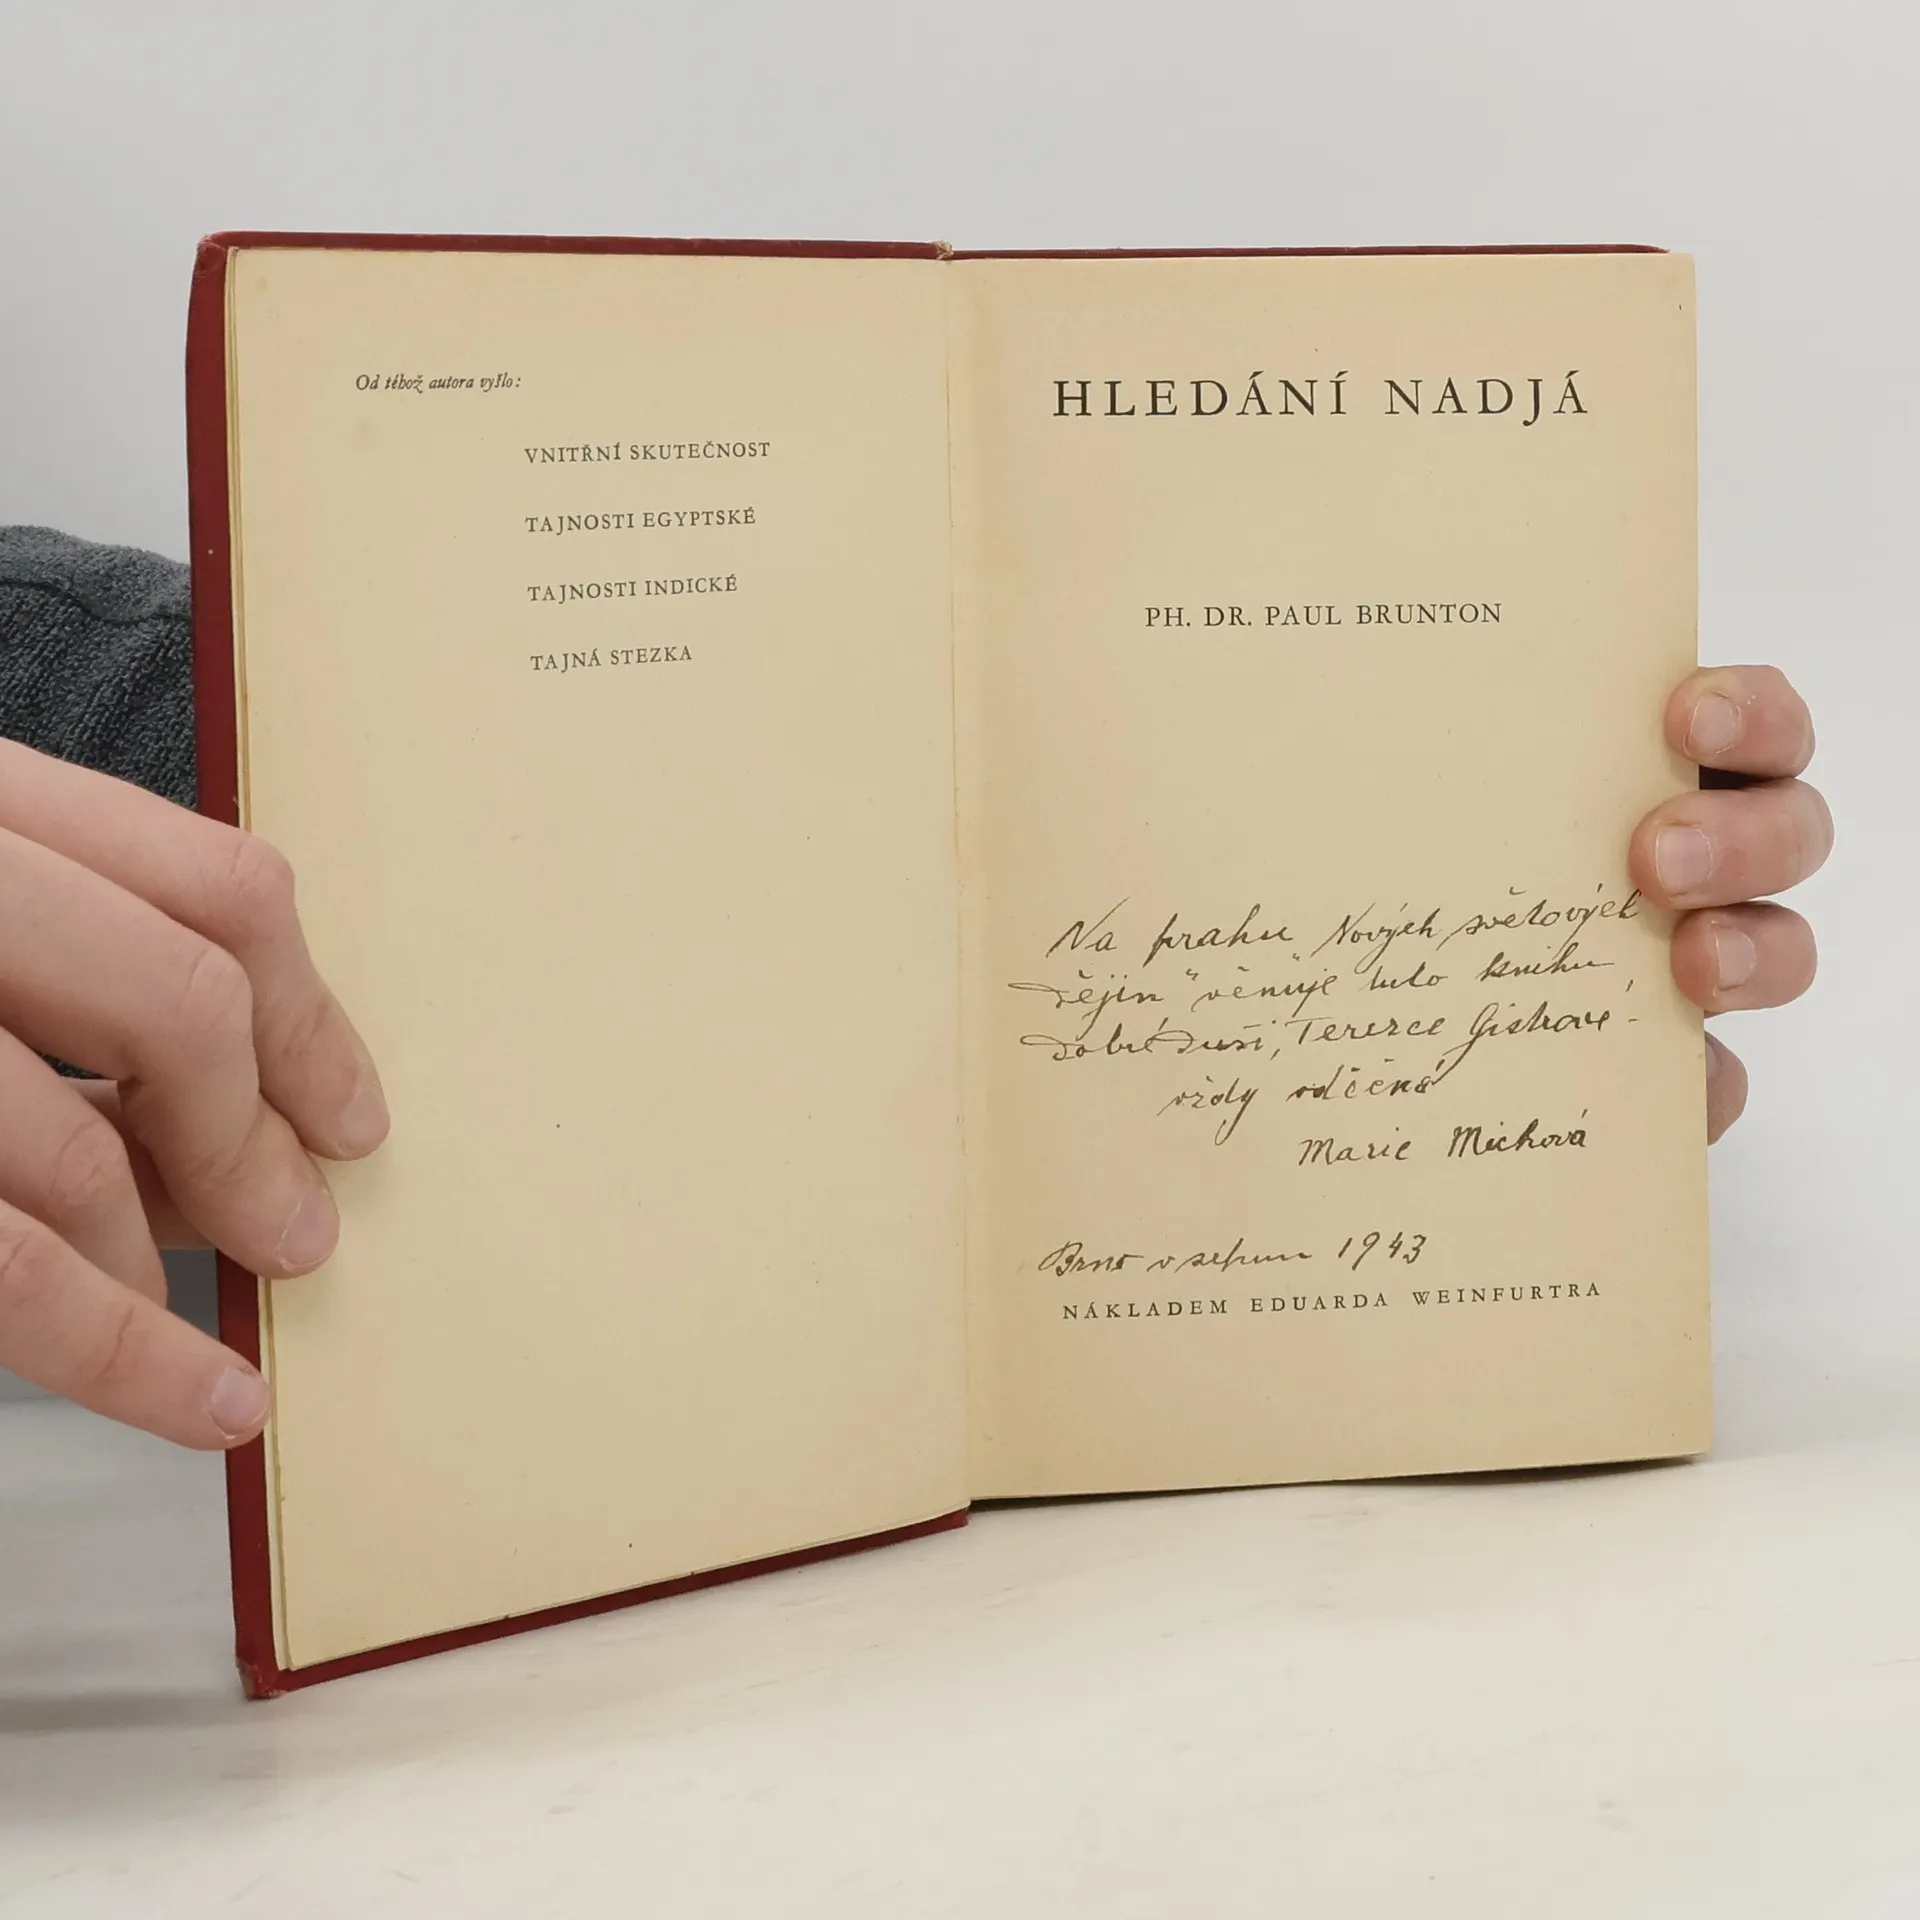 Od téhož autora vyšlo:
VNITŘNÍ SKUTEČNOST
TAJNOSTI EGYPTSKÉ
TAJNOSTI INDICKÉ
TAJNÁ STEZKA
HLEDÁNÍ NADJÁ
PH. DR. PAUL BRUNTON
Na prahu Nových světových
dějin" věnuje tuto knihu
dobré duši, Terezce
vždy vděčná
Marie Michová
Brno v srpnu 1943
NÁKLADEM EDUARDA WEINFURTRA